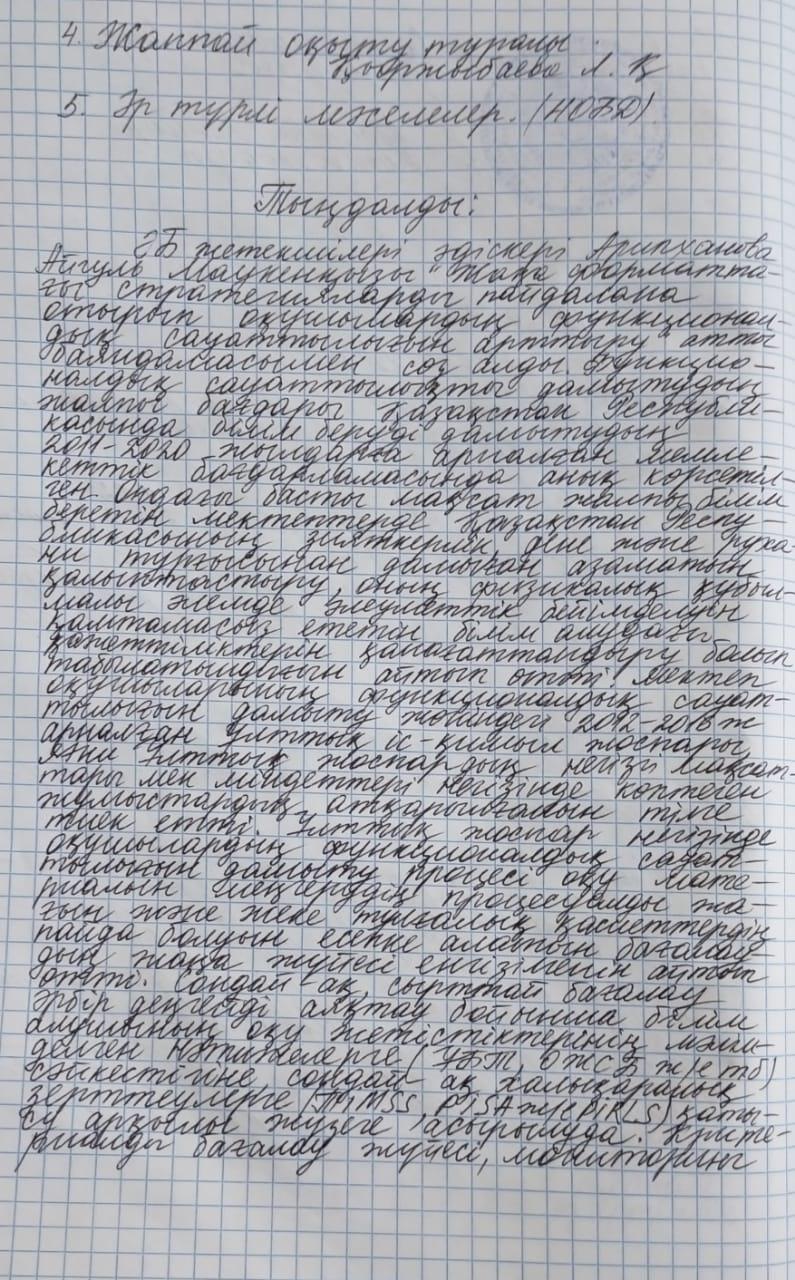 4. Жаппай оқыту туралы.
Қыоржыбаева Л. Қ
5. Әр түрлі мәселелер. (НОБД).
Тыңдалды:
ӘБ жетекшілері әдіскері Арипханова
Айгуль Маукенқызы "Жаңа форматта-
ғы стратегияларды пайдалана
отырып оқушылардың функционал-
дық сауаттылығын арттыру атты
баяндамасымен сөз алды. Функцио-
налдық сауаттылықты дамытудың
жалпы бағдары Қазақстан Республи-
касында білім беруді дамытудың
2011-2020 жылдарға арналған мемле-
кеттік бағдарламасында анық көрсетіл-
ген Ондағы басты мақсат жалпы білім
беретін мектептерде Қазақстан Респу-
бликасының зияткерлік, дене және руха-
ни тұрғысынан дамыған азаматын
қалыптастыру, оның физикалық құбыл-
малы әлемде әлеуметтік бейімделуін
қамтамасыз ететін білім алудағы
қажеттіліктерін қанағаттандыру болып
табылатындығын айтып өтті. Мектеп
оқушыларының функционалдық сауат-
тылығын дамыту жөніндегі 2012-2016 ж
арналған ұлттық іс-қимыл жоспары
яғни Ұлттық жоспардың негізгі мақсат-
тары мен міндеттері негізінде көптеген
жұмыстардың атқарылғанын тілге
тиек етті. Ұлттық жоспар негізінде
оқушылардың функционалдық сауат-
тылығын дамыту процесі оқу мате-
риалын игерудің процесуалды жа-
ғын және жеке тұлғалық қасиеттердің
пайда болуын есепке алатын бағалау-
дың жаңа жүйесі енгізілгенін айтып
өтті. Сондай-ақ, сырттай бағалау
әрбір деңгейді аяқтау бойынша білім
алушының оқу жетістіктерінің мәлім-
делген нәтижелерге (ҰБТ, ОЖСБ ж/е тб)
сәйкестігіне сондай ақ халықаралық
зерттеулерге (TIMSS, PISA ж/е PIRLS) қаты-
су арқылы жүзеге асырылуда. Крите-
риалды бағалау жүйесі, мониторингі